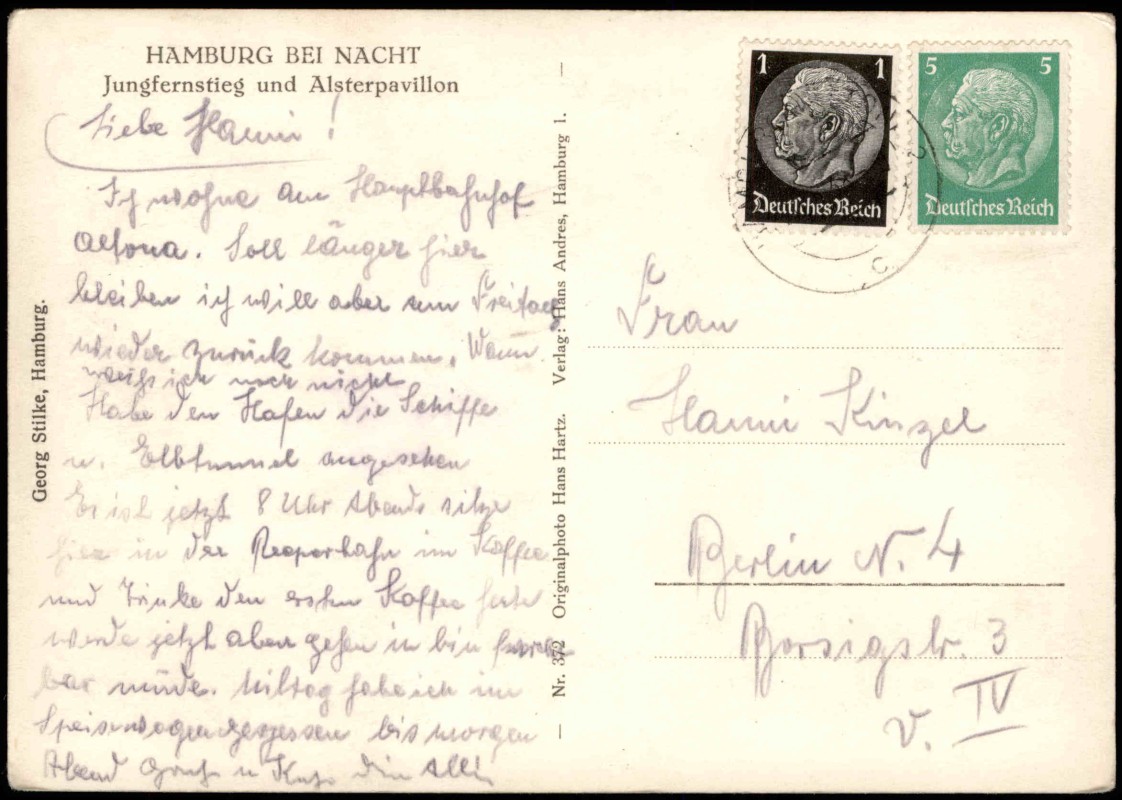 HAMBURG BEI NACHT
Jungfernstieg und Alsterpavillon
Liebe Hanni!
Ich wohne am Hauptbahnhof
Altona. Soll länger hier
bleiben ich will aber am Freitag
wieder zurück kommen. Wann
weiß ich noch nicht
Habe den Hafen die Schiffe
u. Elbtunnel angesehen
Es ist jetzt 8 Uhr Abends sitze
hier in der Reeperbahn im Kaffee
und Trinke den ersten Kaffee heute
werde jetzt aber gehen bin furcht
bar müde. Mittag habe ich im
Speisewagen gegessen bis morgen
Abend Gruß u Kuß Dein
Georg Stilke, Hamburg.
Nr. 372 Originalphoto Hans Hartz. Verlag: Hans Andres, Hamburg 1.
1 1
Deutsches Reich
5 5
Deutsches Reich
Frau
Hanni Kinzel
Berlin N. 4
Borsigstr. 3
v. IV